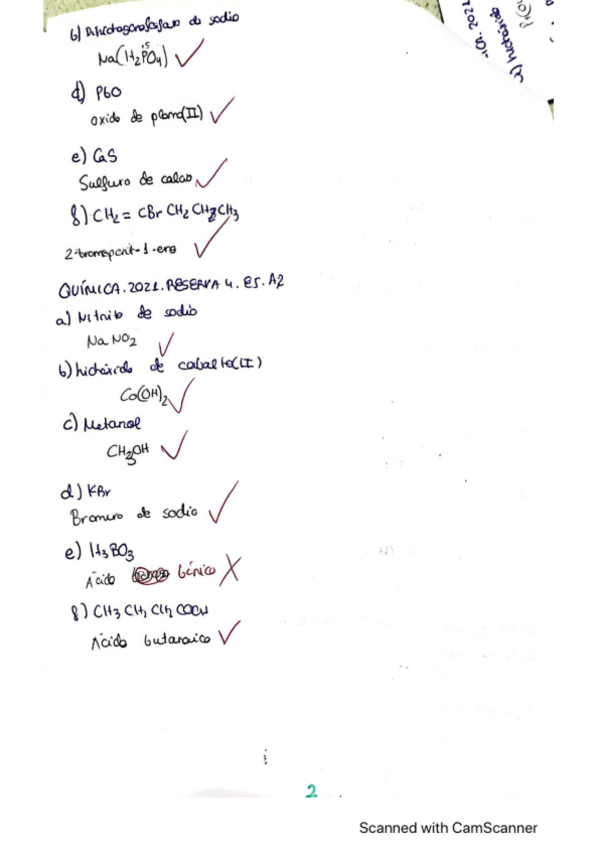 b) Dihidrogenofosfato de sodio
Na(H₂PO₄)
+5
d) PbO
Oxido de plomo(II)
e) CaS
Sulfuro de calcio
f) CH₂ = CBr CH₂ CH₂CH₃
2-bromopent-1-eno
QUÍMICA.2021.RESERVA 4. ES. A2
a) Nitrito de sodio
Na NO₂
b) hidróxido de cobalto(II)
Co(OH)₂
c) Metanol
CH₃OH
d) KBr
Bromuro de sodio
e) H₃BO₃
Ácido bórico
f) CH₃ CH₂ CH₂ COOH
Ácido butanoico
2
Scanned with CamScanner